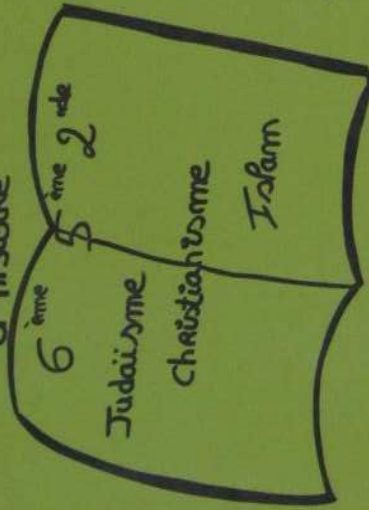 6ème 5ème 2nde
Judaïsme
Christianisme
Islam